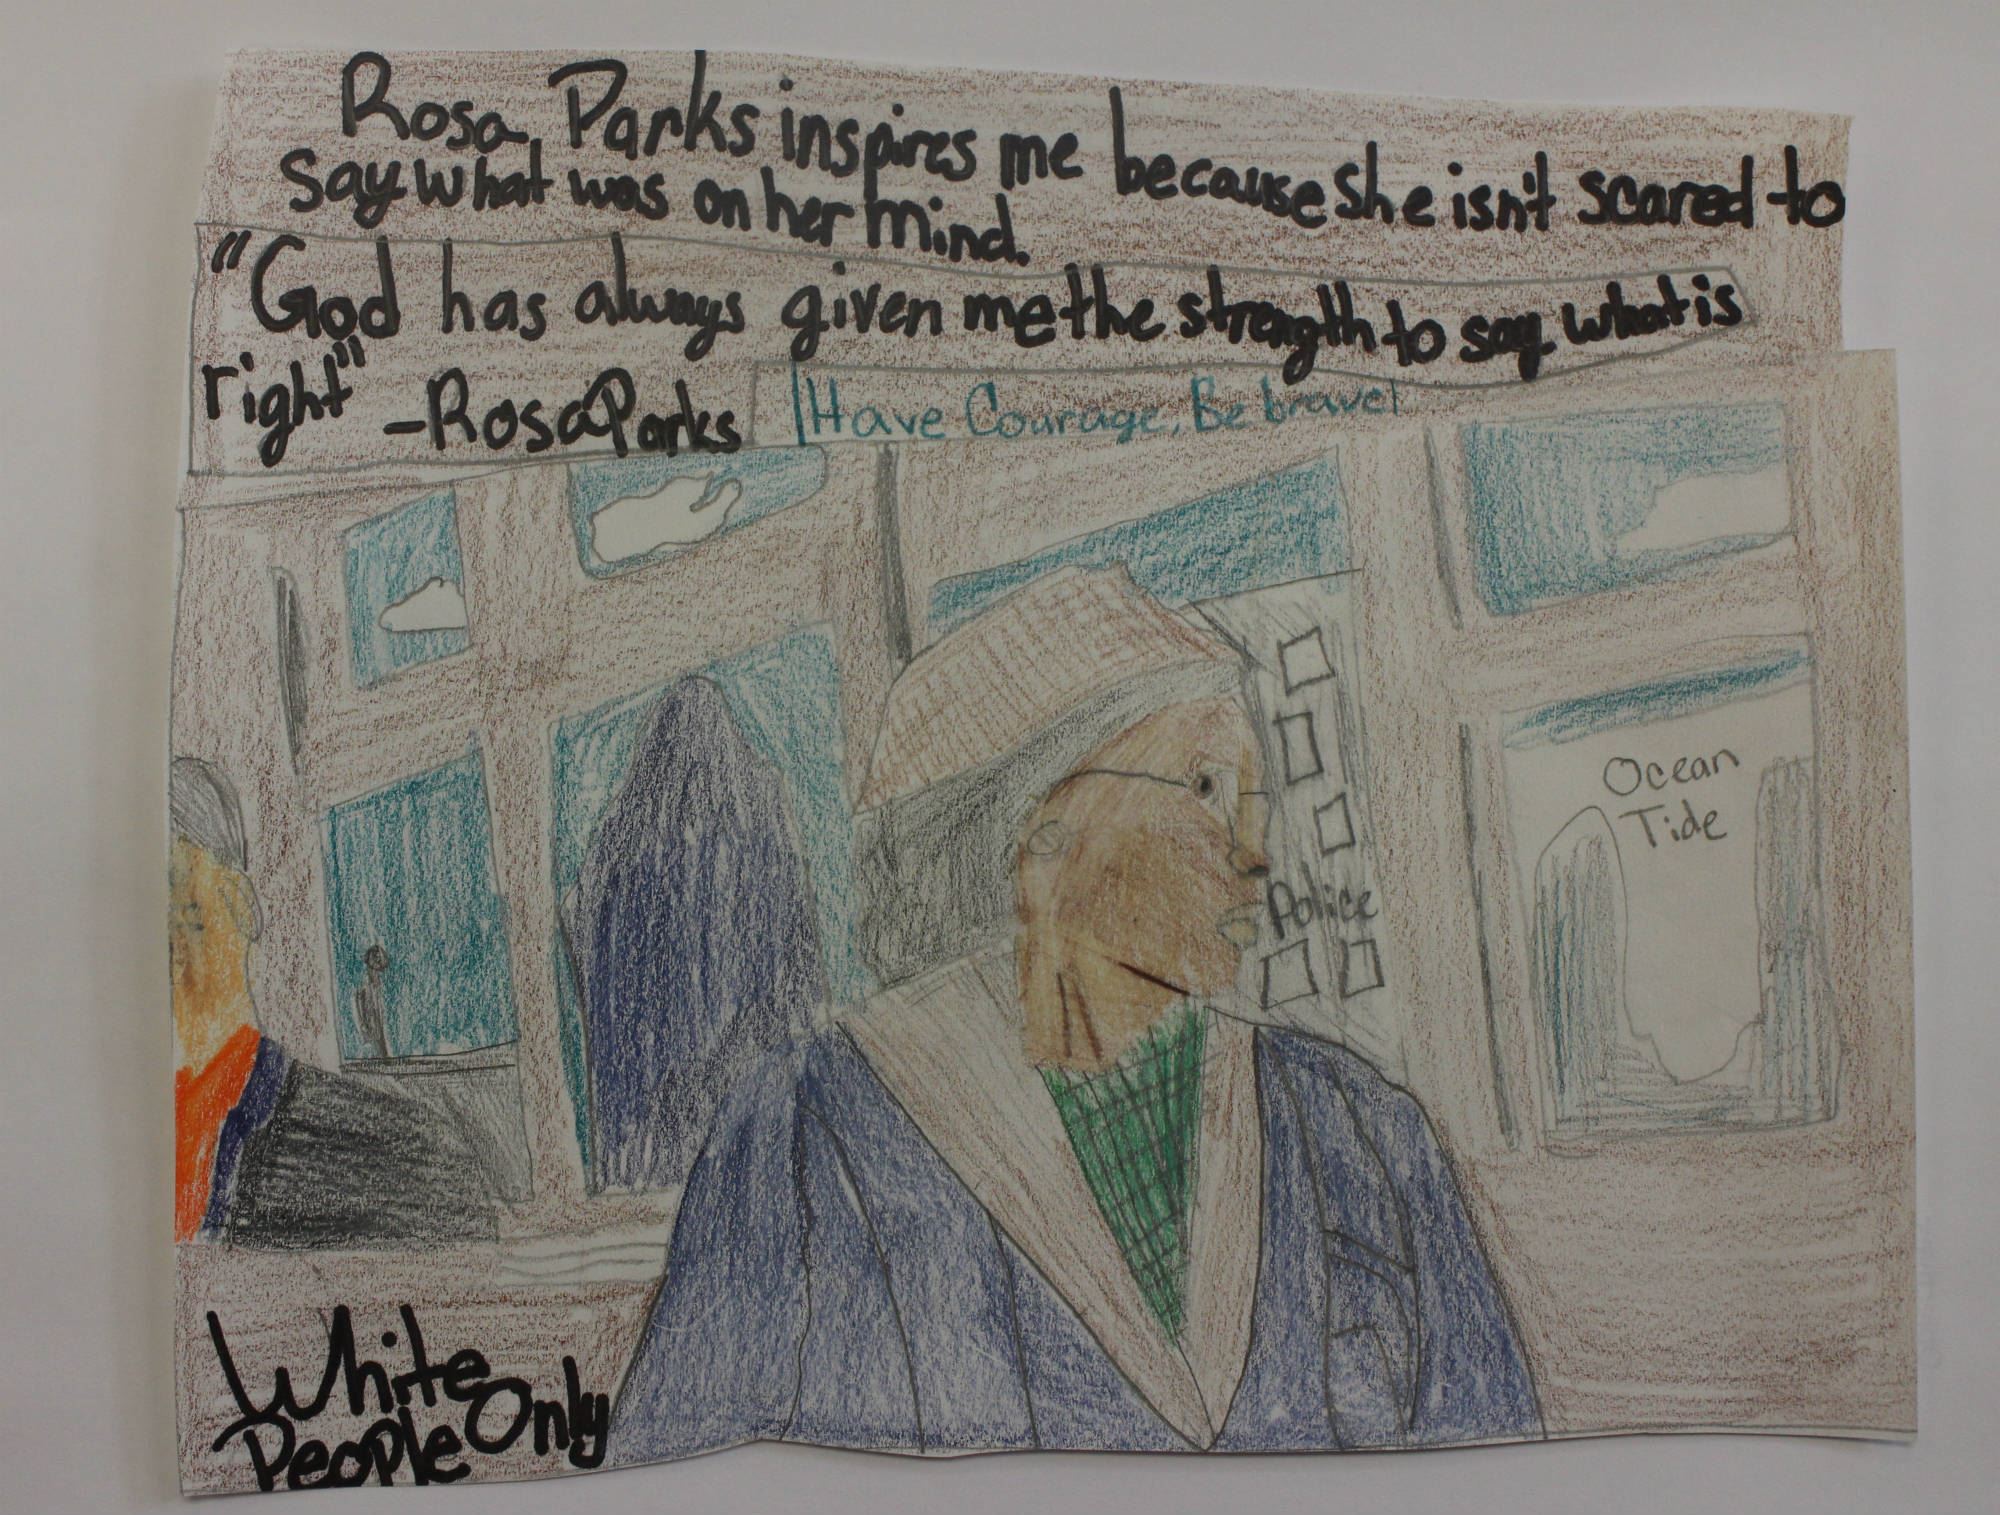 Rosa Parks inspires me because she isn't scared to
say what was on her mind.
"God has always given me the strength to say what is
right"
-Rosa Parks
Have Courage, Be brave!
Ocean
Tide
Police
White
People Only